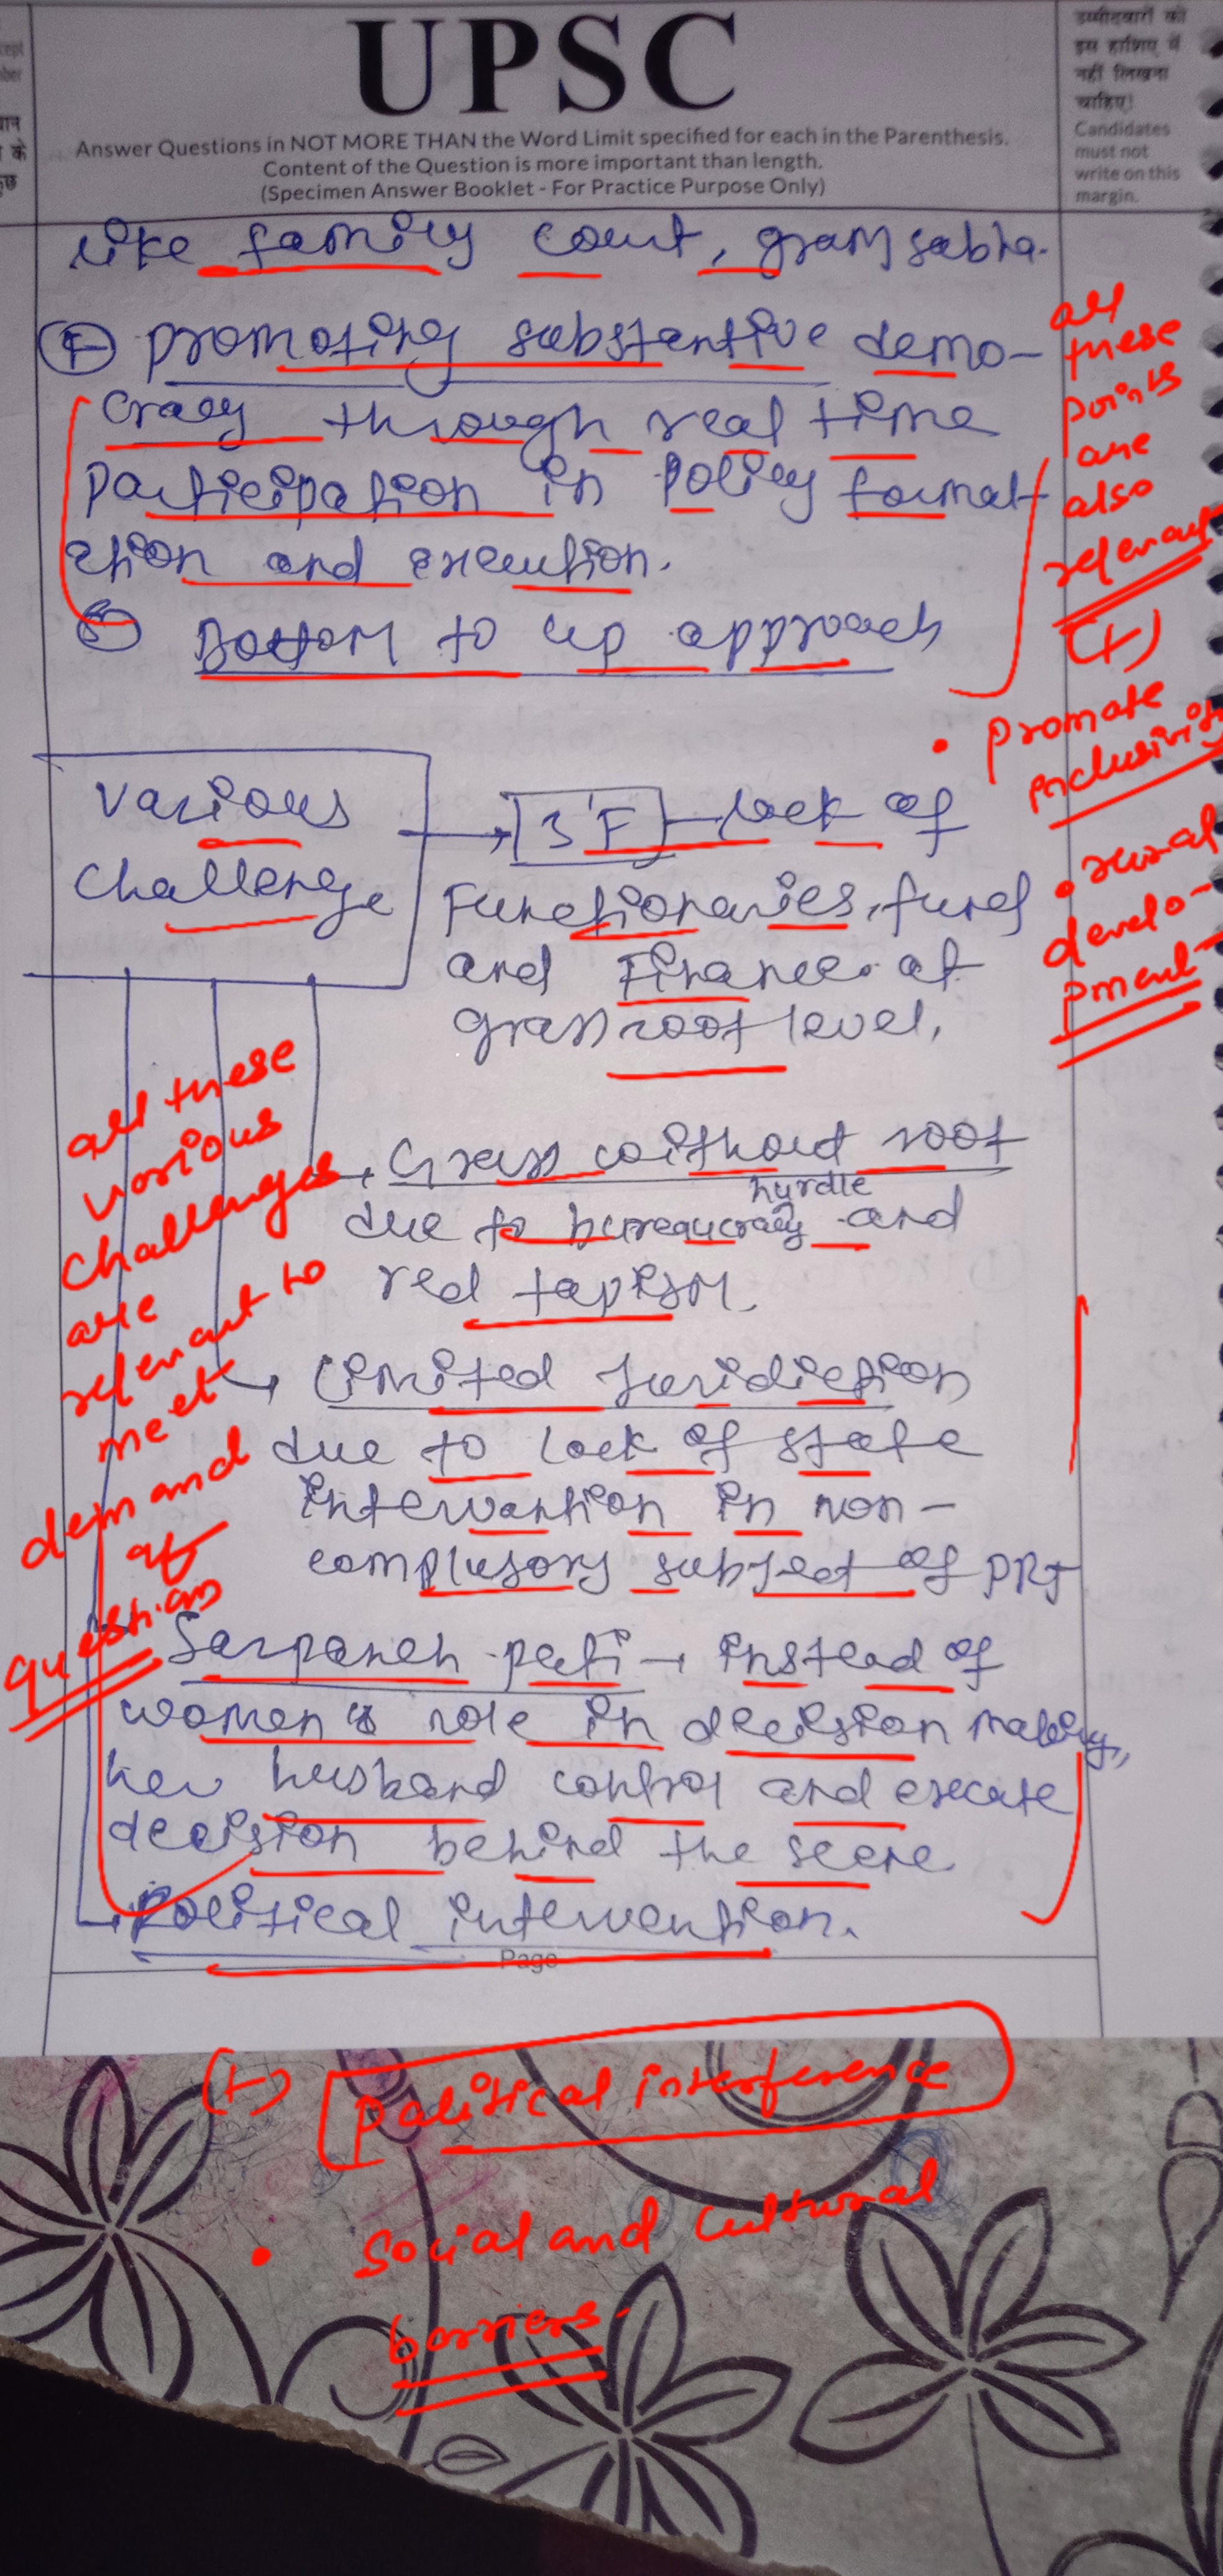 UPSC
Answer Questions in NOT MORE THAN the Word Limit specified for each in the Parenthesis.
Content of the Question is more important than length.
(Specimen Answer Booklet - For Practice Purpose Only)
उम्मीदवारों को
इस हाशिए में
नहीं लिखना
चाहिए।
Candidates
must not
write on this
margin.
like family court, gram sabha.
④ promoting substantive demo-
cracy through real time
participation in policy format-
ation and execution.
⑤ Bottom to up approach
all
these
points
are
also
relevant
(+)
• promote
inclusivity
• rural
develo-
pment
Various
challenge
3'F
lack of
Functionaries, fund
and Finance at
grassroot level.
Grass without root
hurdle
due to bureaucracy and
red tapism.
Limited Juridiction
due to lack of state
intervantion in non-
complusory subject of PRI
Sarpanch pati → instead of
women's role in decision making,
her husband control and execute
decision behind the scene
Political intervention.
all these
various
challenges
are
relevant to
meet
demand
of
question
Page
(+) Political interference
• Social and cultural
barriers.